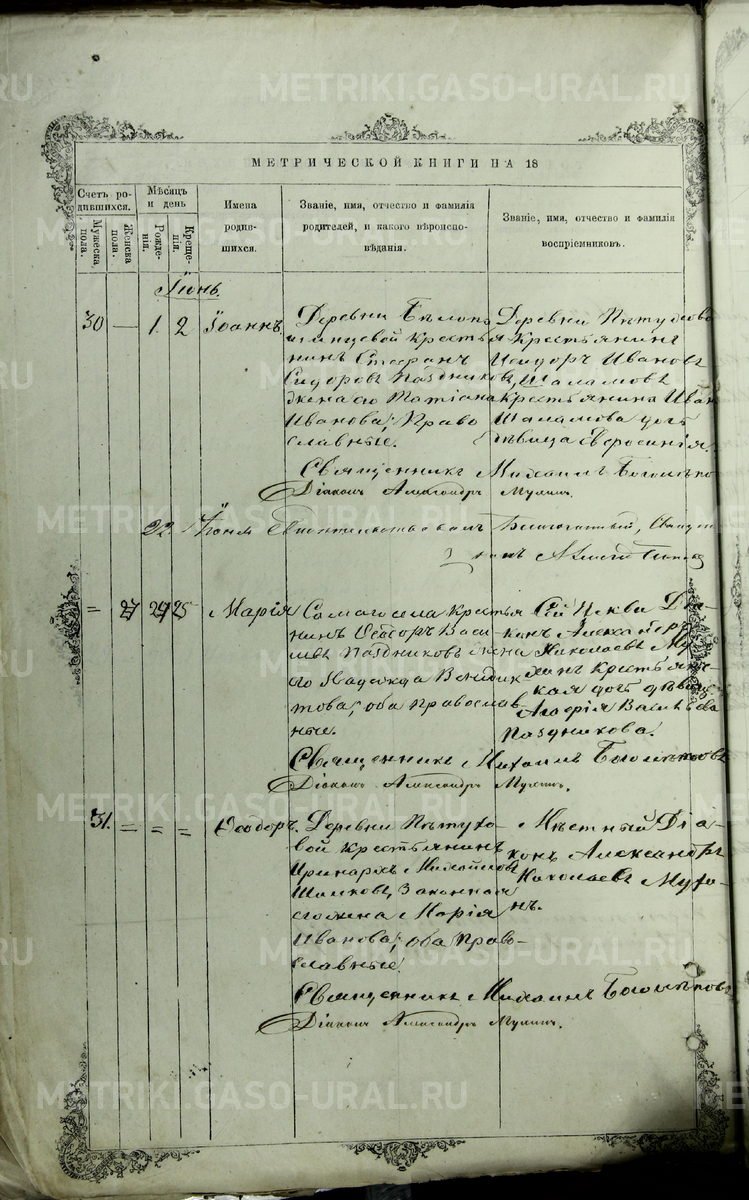 МЕТРИЧЕСКОЙ КНИГИ НА 18
Счетъ родившихся.
Мужеска пола.
Женска пола.
Мѣсяцъ и день
Рожденія.
Крещенія.
Имена родившихся.
Званіе, имя, отчество и фамилія родителей, и какого вѣроисповѣданія.
Званіе, имя, отчество и фамилія воспріемниковъ.
Іюнь.
30 — 1. 2 Іоаннъ.
Деревни
крестьянинъ Стефанъ
Сидоровъ Паздниковъ,
жена его Татіана
Иванова; Право
славные.
Деревни Пѣтухово
Крестьянинъ
Исидоръ Ивановъ
Шаламовъ
Крестьянина Иван
Шаламова дочь
дѣвица
Священникъ Михаилъ
Діаконъ Александръ Мухинъ.
22. Іюня Свидѣтельствовалъ Благочинный, Священ
= 27 25 Марія
Самаго села Крестья
нинъ Ѳеодоръ Васи
льевъ Паздниковъ жена
его Надежда Венедик
това; оба Православ
ные.
Сей Церкви Діа
конъ Александръ
Николаевъ Му
хинъ Крестьянс
кая дочь дѣвица
Васильева
Паздникова.
Священникъ Михаилъ
Діаконъ Александръ Мухинъ.
31. = = = Ѳеодоръ.
Деревни Пѣтухо-
вой крестьянинъ
Иринархъ Михайловъ
Законная
его жена Марія
Иванова; оба Право-
славные.
Мѣстный Діа-
конъ Александръ
Николаевъ Мухи-
нъ.
Священникъ Михаилъ
Діаконъ Александръ Мухинъ.
METRIKI.GASO-URAL.RU